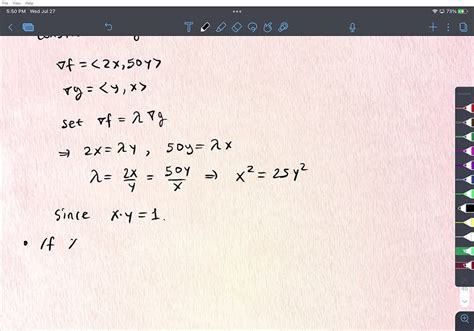 File View Help
5:50 PM Wed Jul 27
73%
∇f = <2x, 50y>
∇g = <y, x>
set ∇f = λ∇g
⇒ 2x = λy , 50y = λx
λ = 2x/y = 50y/x ⇒ x² = 25y²
Since x·y = 1.
• If